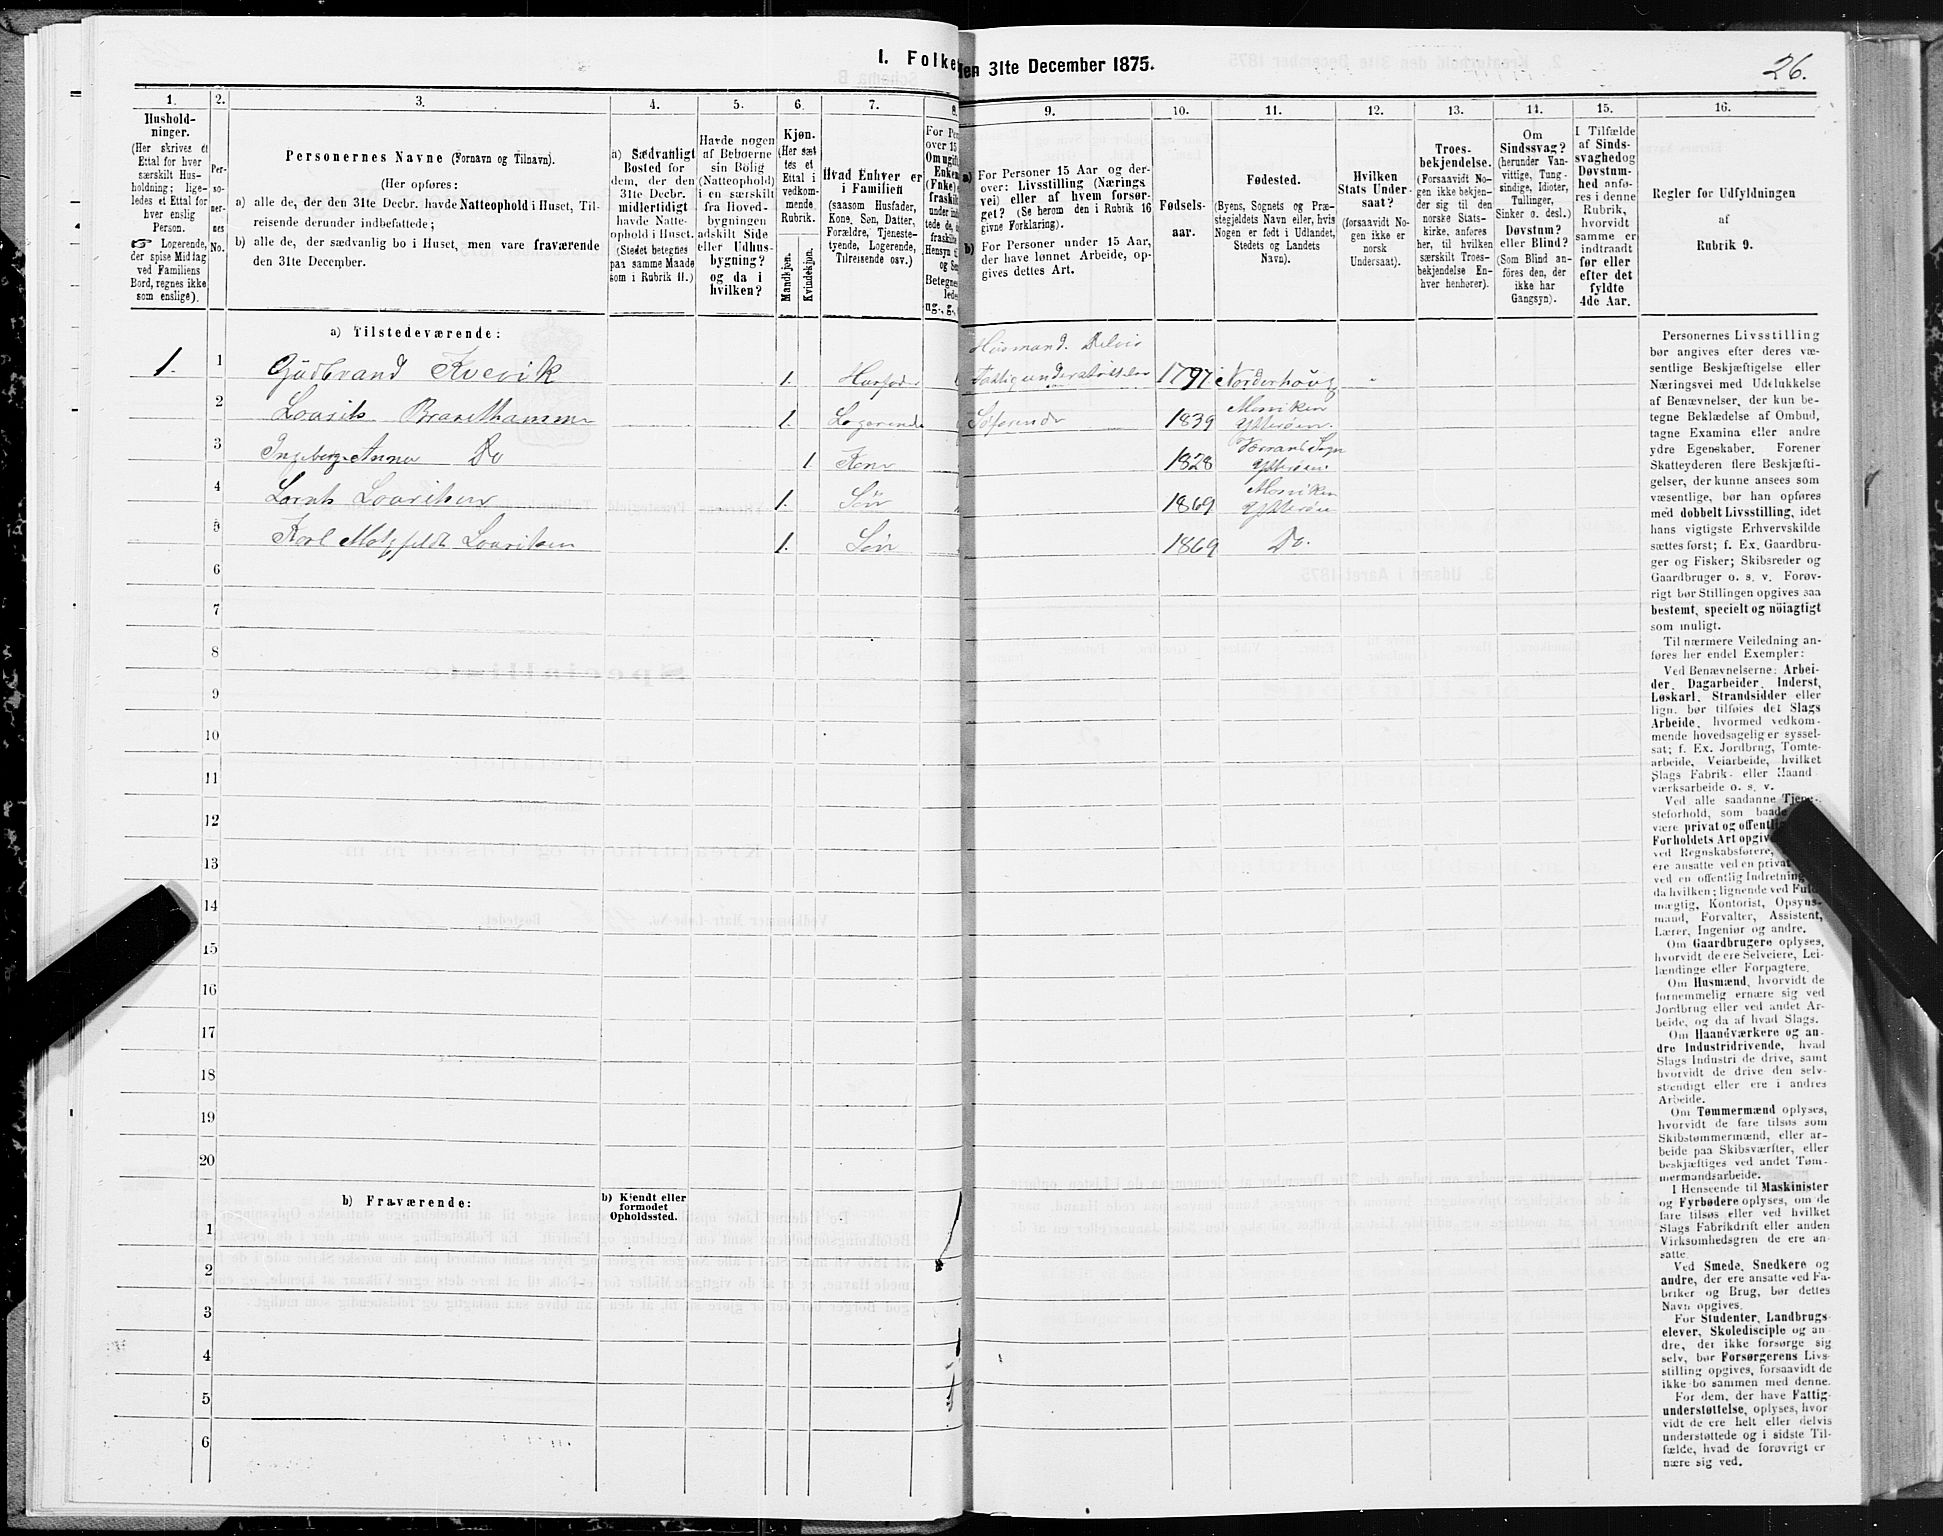 I. Folke
den 31te December 1875.
26.
1.
2.
3.
4.
5.
6.
7.
8.
9.
10.
11.
12.
13.
14.
15.
16.
Hushold-
ninger.
(Her skrives et
Ettal for hver
særskilt Hus-
holdning; lige-
ledes et Ettal for
hver enslig
Person.
☞ Logerende,
der spise Middag
ved Familiens
Bord, regnes ikke
som enslige).
Per-
so-
ner-
nes
No.
Personernes Navne (Fornavn og Tilnavn).
(Her opføres:
a) alle de, der den 31te Decbr. havde Natteophold i Huset, Til-
reisende derunder indbefattede;
b) alle de, der sædvanlig bo i Huset, men vare fraværende
den 31te December.
a) Sædvanligt
Bosted for
dem, der den
31te Decbr.
midlertidigt
havde Natte-
ophold i Huset.
(Stedet betegnes
paa samme Maade
som i Rubrik 11.)
Havde nogen
af Beboerne
sin Bolig
(Natteophold)
i en særskilt
fra Hoved-
bygningen
adskilt Side
eller Udhus-
bygning?
og da i
hvilken?
Kjøn.
(Her sæt
tes et
Ettal i
vedkom-
mende
Rubrik.
Mandkjøn.
Kvindekjøn.
Hvad Enhver er
i Familien
(saasom Husfader,
Kone, Søn, Datter,
Forældre, Tjeneste-
tyende, Logerende,
Tilreisende osv.)
For Pe
over 15
Omugift
Enken
(Fnke) e
fraskilt
under in
tede de,
fraskil
Hensyn t
og Se
Betegne
lede
ug., g.,
a) For Personer 15 Aar og der-
over: Livsstilling (Nærings
vei) eller af hvem forsør-
get? (Se herom den i Rubrik 16
givne Forklaring).
b) For Personer under 15 Aar,
der have lønnet Arbeide, op-
gives dettes Art.
Fødsels-
aar.
Fødested.
(Byens, Sognets og Præ-
stegjeldets Navn eller, hvis
Nogen er født i Udlandet,
Stedets og Landets
Navn).
Hvilken
Stats Under-
saat?
(forsaavidt No-
gen ikke er
norsk
Undersaat).
Troes-
bekjendelse.
(Forsaavidt No-
gen ikke bekjen-
der sig til den
norske Stats-
kirke, anføres
her, til hvilken
særskilt Troes-
bekjendelse En-
hver henhører).
Om
Sindssvag?
(herunder Van-
vittige, Tung-
sindige, Idioter,
Tullinger,
Sinker o. desl.)
Døvstum?
eller Blind?
(Som Blind an-
føres den, der
ikke har
Gangsyn).
I Tilfælde
af Sinds-
svaghedog
Døvstum-
hed anfø-
res i denne
Rubrik,
hvorvidt
samme er
indtraadt
før eller
efter det
fyldte
4de Aar.
Regler før Udfyldningen
af
Rubrik 9.
a) Tilstedeværende:
Husmand. Delvis
1. 1 Gudbrand Kvevik 1. Husfader Fattigunderstøttelse 1797 Norderhoug
2 Lauritz 1. Logerende Søfarende 1839 Mosviken
Ytterøen.
3 Ingeborg Anna Do 1 Kone 1828
Ytterøen.
4 Lornts Lauritsen 1. Søn 1869 Mosviken
Ytterøen
5 Karl Motzfeldt Lauritsen 1. Søn 1869 Do.
6
7
8
9
10
11
12
13
14
15
16
17
18
19
20
b) Fraværende:
b) Kjendt eller
formodet
Opholdssted.
1
2
3
4
5
6
Personernes Livsstilling
bør angives efter deres væ-
sentlige Beskjæftigelse eller
Næringsvei med Udelukkelse
af Benævnelser, der kun be-
tegne Beklædelse af Ombud,
tagne Examina eller andre
ydre Egenskaber. Forener
Skatteyderen flere Beskjæfti-
gelser, der kunne ansees som
væsentlige, bør han opføres
med dobbelt Livsstilling, idet
hans vigtigste Erhvervskilde
sættes først; f. Ex. Gaardbru-
ger og Fisker; Skibsreder og
Gaardbruger o. s. v. Forøv-
rigt bør Stillingen opgives saa
bestemt, specielt og nöiagtigt
som muligt.
Til nærmere Veiledning an-
føres her endel Exempler:
Ved Benævnelserne: Arbei-
der, Dagarbeider, Inderst,
Løskarl, Strandsidder eller
lign. bør tilføies det Slags
Arbeide, hvormed vedkom-
mende hovedsagelig er syssel-
sat; f. Ex. Jordbrug, Tomte-
arbeide, Veiarbeide, hvilket
Slags Fabrik- eller Haand
værksarbeide o. s. v.
Ved alle saadanne Tjene-
steforhold, som baade
være privat og offentlig
Forholdets Art opgiv
ved Regnskabsførere,
ere ansatte ved en privat
ved en offentlig Indretning
da hvilken; lignende ved Fuld
mægtig, Kontorist, Opsyns-
mand, Forvalter, Assistent,
Lærer, Ingeniør og andre.
Om Gaardbrugere oplyses,
hvorvidt de ere Selveiere, Lei-
lændinge eller Forpagtere.
Om Husmænd, hvorvidt de
fornemmelig ernære sig ved
Jordbrug eller ved andet Ar-
beide, og da af hvad Slags.
Om Haandværkere og an-
dre Industridrivende, hvad
Slags Industri de drive, samt
hvorvidt de drive den selv-
stændigt eller ere i andres
Arbeide.
Om Tømmermænd oplyses,
hvorvidt de fare tilsøs som
Skibstømmermænd, eller ar-
beide paa Skibsværfter, eller
beskjæftiges ved andet Tøm-
mermandsarbeide.
I Henseende til Maskinister
og Fyrbødere oplyses, om de
fare tilsøs eller ved hvilket
Slags Fabrikdrift eller anden
Virksomhedsgren de ere an-
satte.
Ved Smede, Snedkere og
andre, der ere ansatte ved Fa-
briker og Brug, bør dettes
Navn opgives.
For Studenter, Landbrugs-
elever, Skoledisciple og an-
dre, der ikke forsørge sig
selv, bør Forsørgerens Livs-
stilling opgives, forsaavidt de
ikke bo sammen med denne.
For dem, der have Fattig-
understøttelse, oplyses, hvor
vidt de ere helt eller delvis
understøttede og i sidste Til-
fælde, hvad de forøvrigt er
nære sig ved.